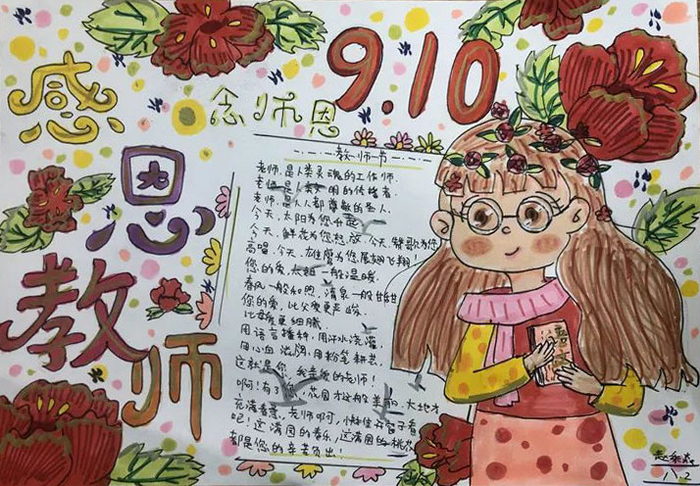 感恩教师
念师恩
9.10
教师节
老师,是人类灵魂的工作师.
老师,是人类文明的传播者.
老师,是人人都尊敬的圣人.
今天,太阳为您升起
今天,鲜花为您怒放,今天,雄歌为您
高唱,今天,雄鹰为您展翅飞翔!
您的爱,太阳一般温暖,
春风一般和煦,清泉一般甘甜
您的爱,比父爱更严峻,
比母爱更细腻
用语言播种,用汗水浇灌,
用心血滋润,用粉笔耕耘,
这就是您,我亲爱的老师!
啊!有了您,花园才这般美丽,大地才
充满春意,老师啊,快推开窗子看
吧!这满园的春乐,这满园的桃李
都是您的辛苦负出!
语文